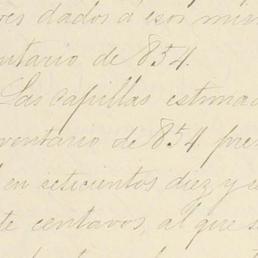 res dados á esos mis
ntario de 854.
Las capillas estima
ventario de 854 pre
en setecientos diez y
te centavos, al que s